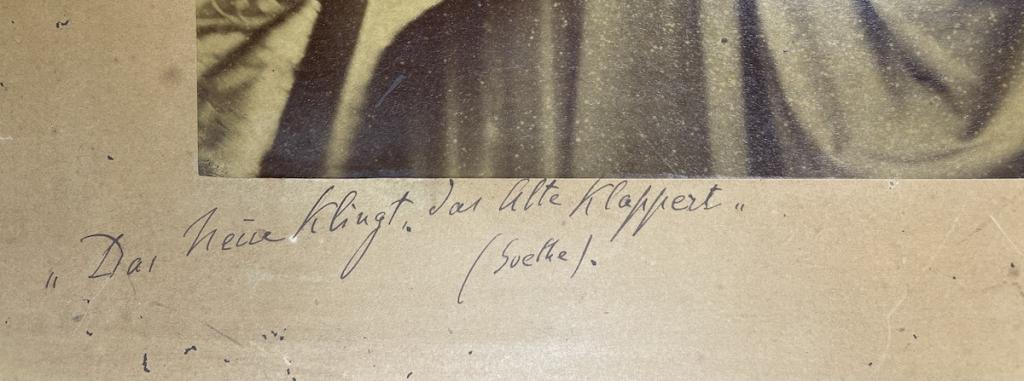 „Das Neue klingt, das Alte klappert"
(Goethe).